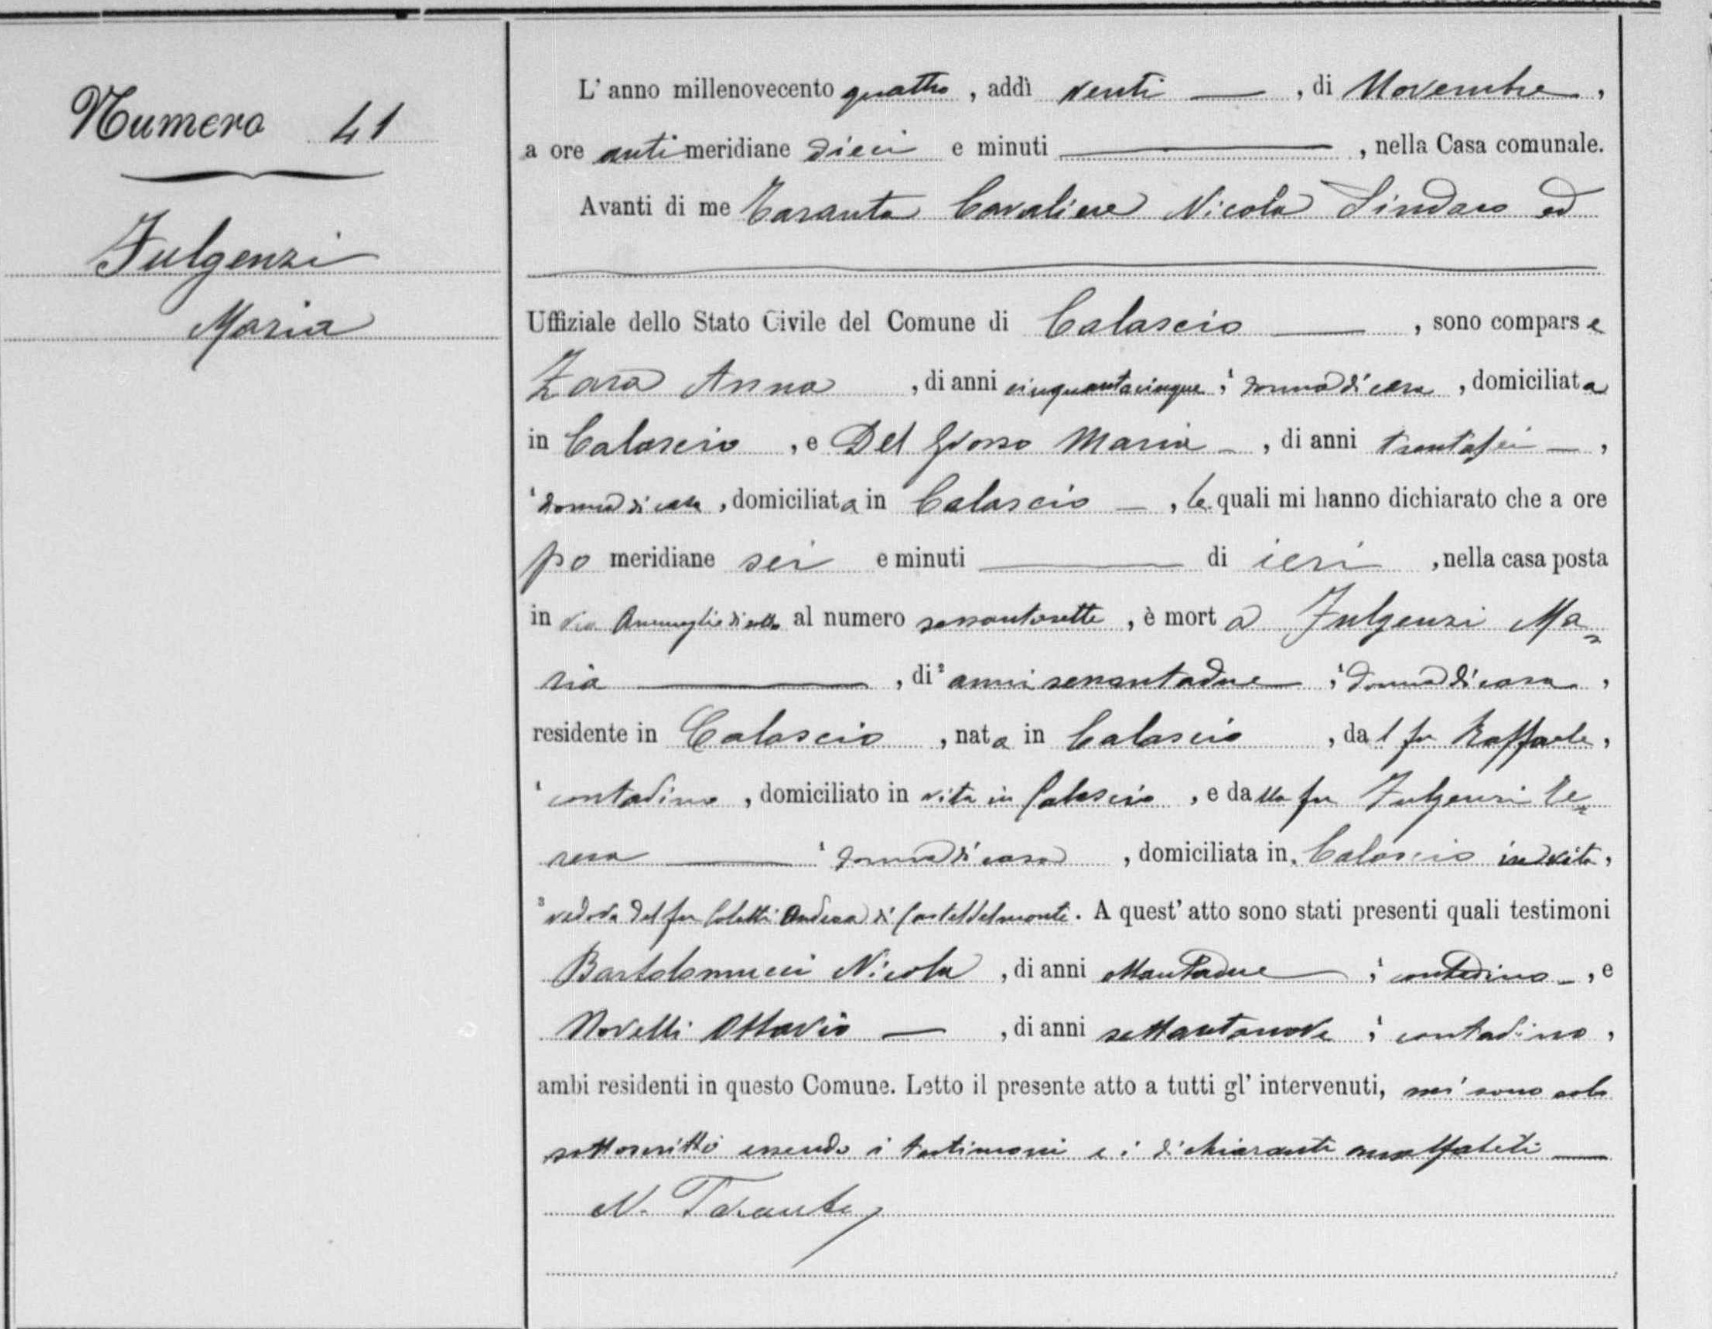 Numero 41
Fulgenzi
Maria
L' anno millenovecento quattro, addì venti, di Novembre,
a ore antimeridiane dieci e minuti, nella Casa comunale.
Avanti di me Taranta Cavaliere Nicola Sindaco ed
Uffiziale dello Stato Civile del Comune di Calascio, sono comparse
Zara Anna, di anni cinquantacinque, donna di casa, domiciliata
in Calascio, e Del Grosso Maria, di anni trentasei,
donna di casa, domiciliata in Calascio, le quali mi hanno dichiarato che a ore
pomeridiane sei e minuti di ieri, nella casa posta
in via al numero sessantasette, è morta Fulgenzi Ma=
ria, di anni sessantadue, donna di casa,
residente in Calascio, nata in Calascio, dal fu Raffaele,
contadino, domiciliato in vita in Calascio, e dalla fu Fulgenzi Te=
resa donna di casa, domiciliata in Calascio in vita,
vedova del fu Coletti Andrea di Casteldelmonte. A quest' atto sono stati presenti quali testimoni
Bartolomucci Nicola, di anni, contadino, e
Novelli Ottavio, di anni settantanove, contadino,
ambi residenti in questo Comune. Letto il presente atto a tutti gl' intervenuti, mi sono solo
sottoscritto essendo i testimoni e i dichiaranti analfabeti
N. Taranta